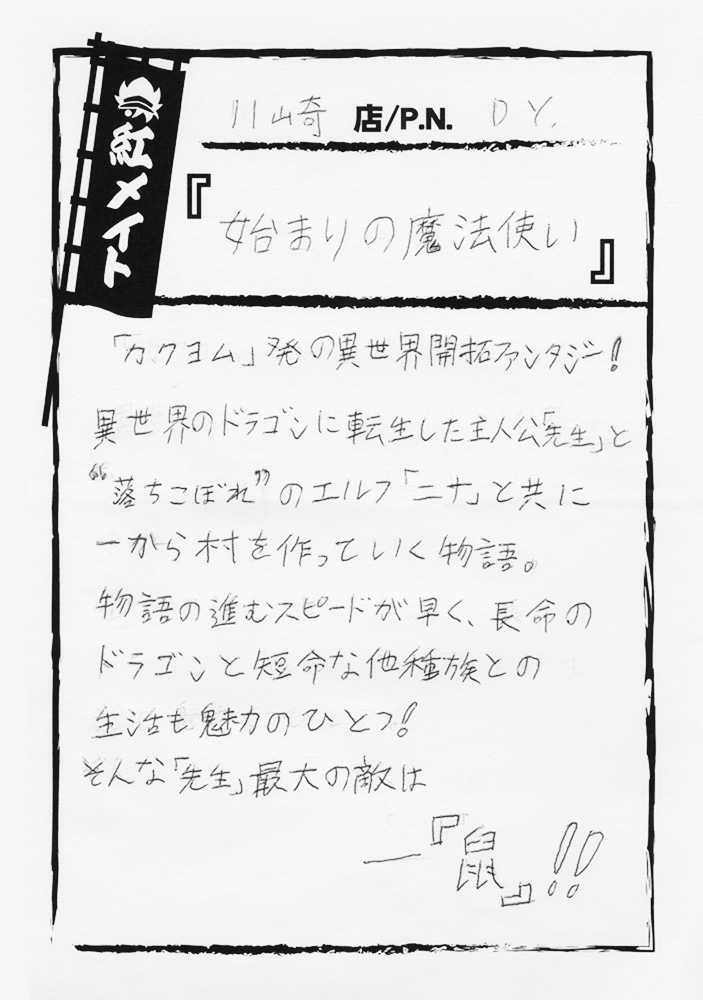 紅メイト
川崎 店/P.N. D Y.
『始まりの魔法使い』
「カクヨム」発の異世界開拓ファンタジー!
異世界のドラゴンに転生した主人公「先生」と
“落ちこぼれ”のエルフ「ニナ」と共に
一から村を作っていく物語。
物語の進むスピードが早く、長命の
ドラゴンと短命な他種族との
生活も魅力のひとつ!
そんな「先生」最大の敵は
―『鼠』!!